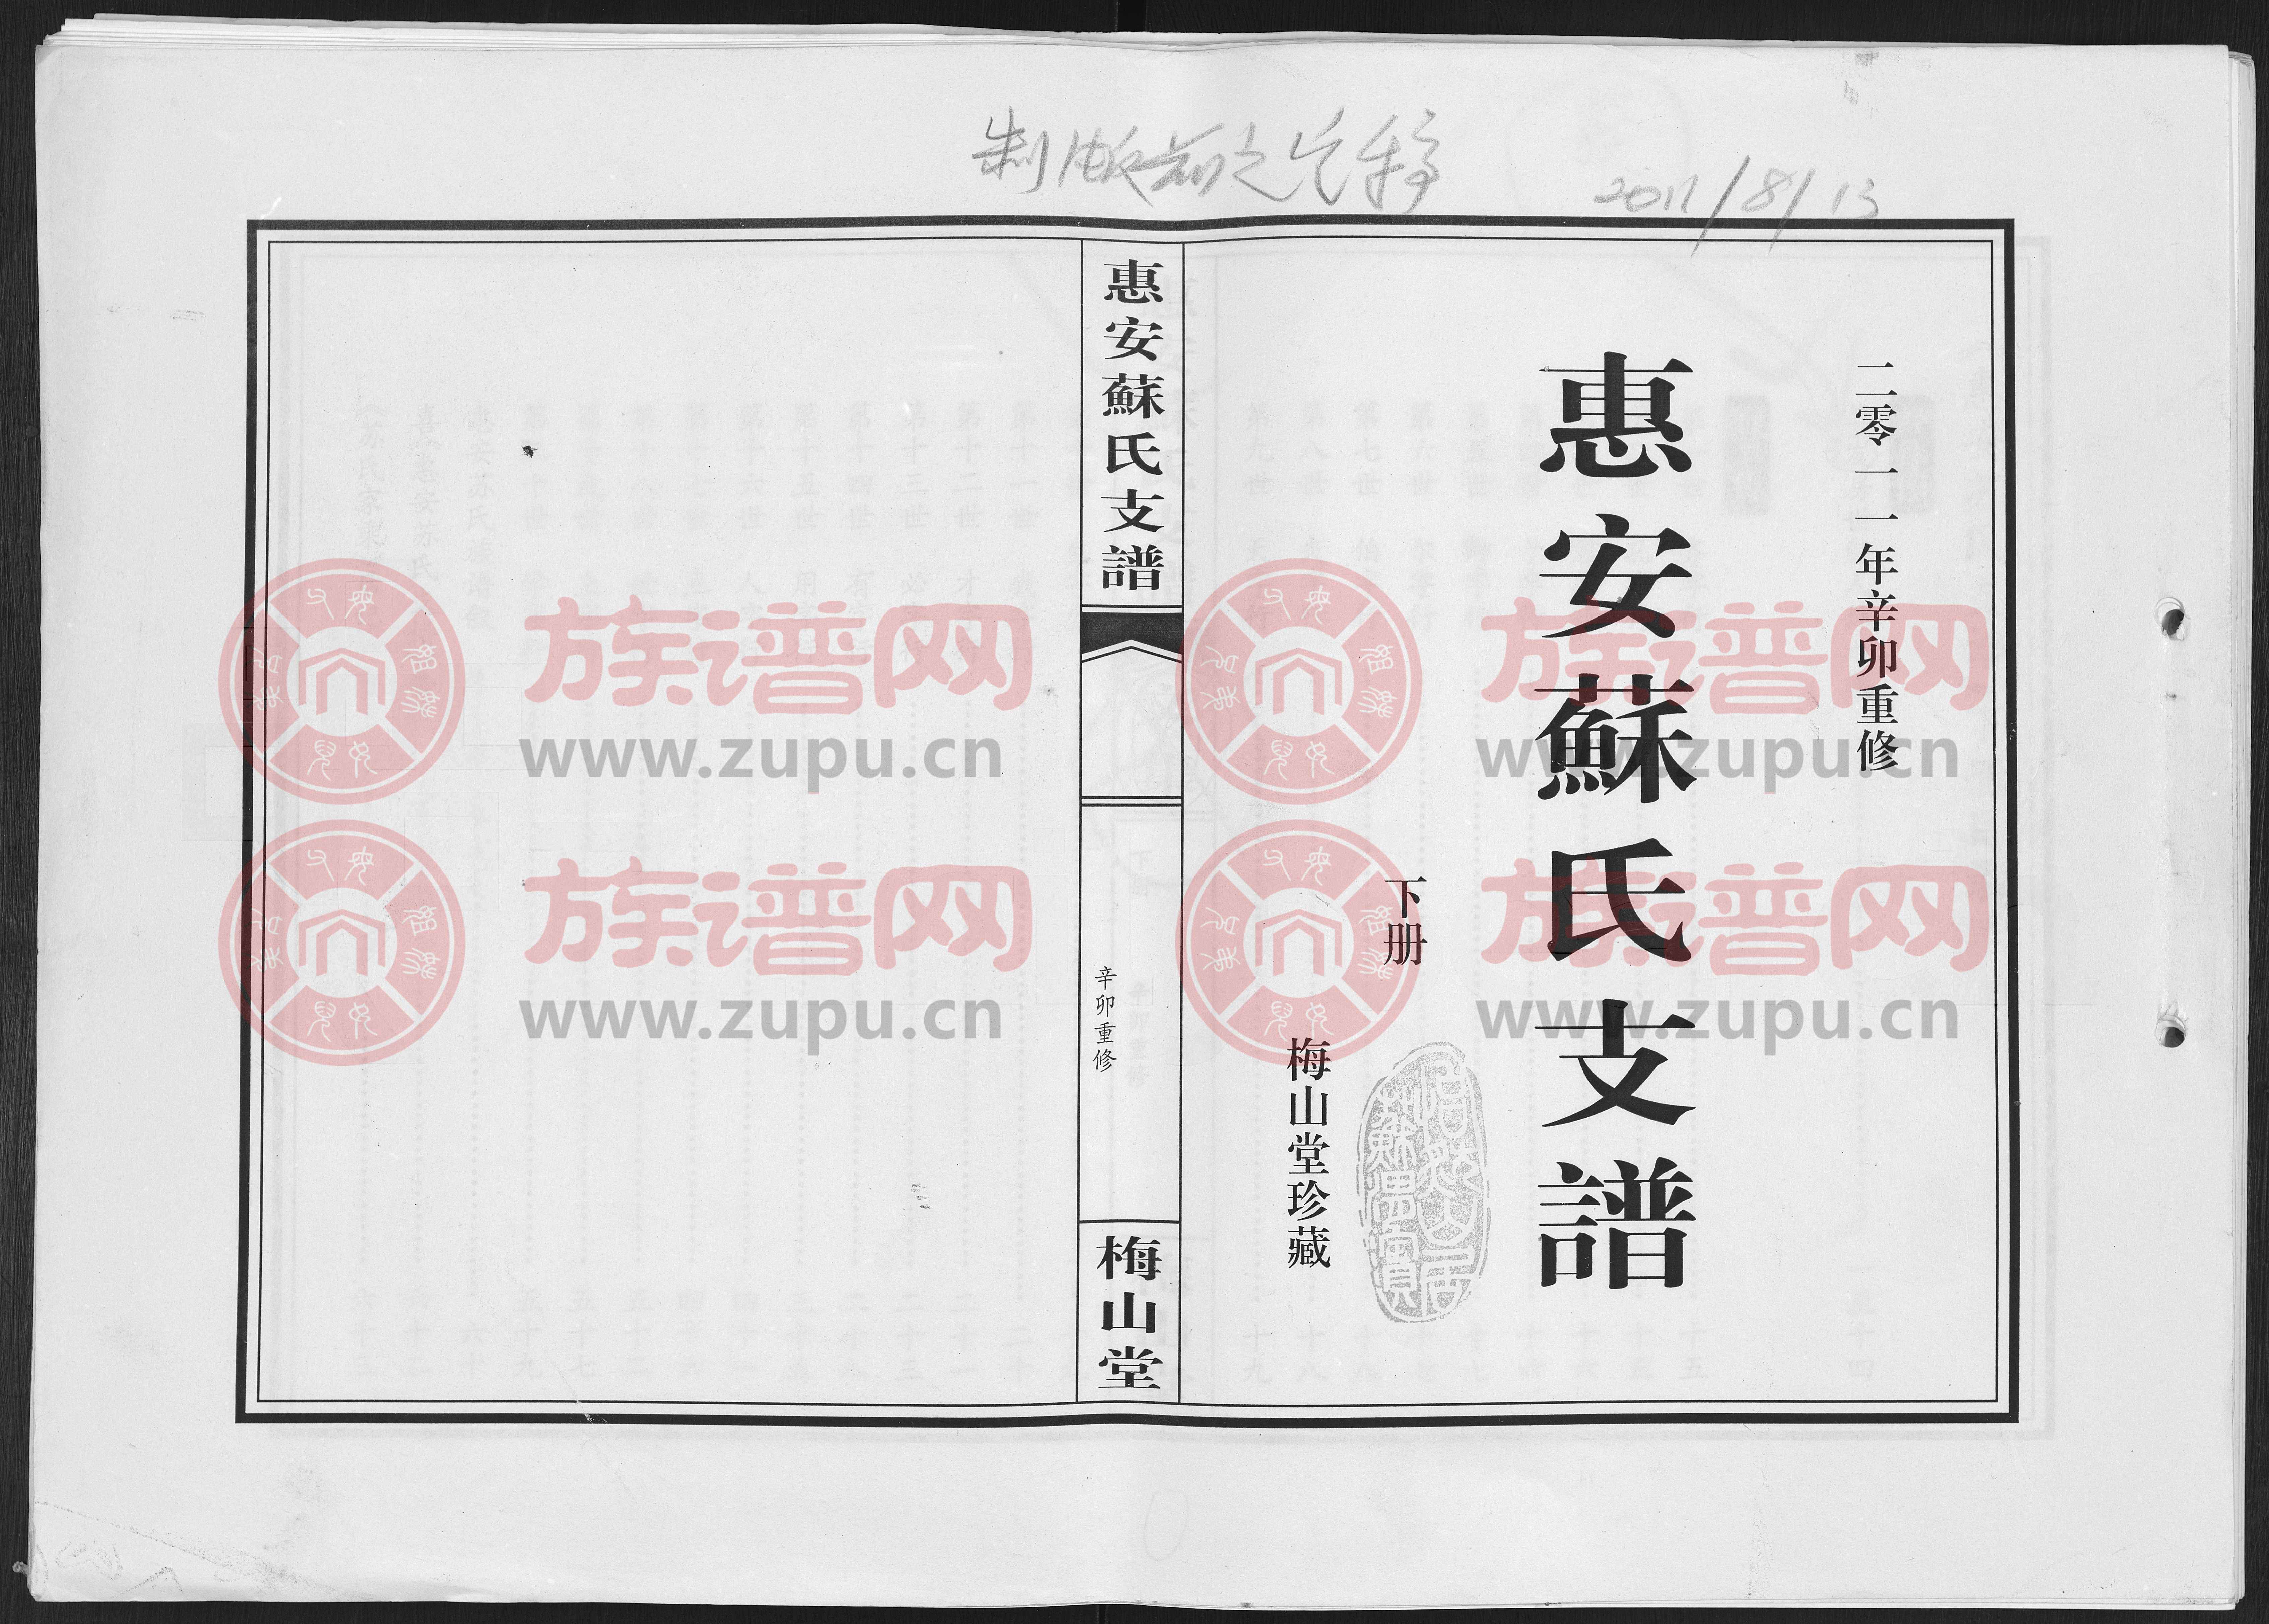 制版前之定稿
2011/8/13
二零一一年辛卯重修
惠安蘇氏支譜
下册
梅山堂珍藏
惠安蘇氏支譜
辛卯重修
梅山堂
族谱网
www.zupu.cn
族谱网
www.zupu.cn
族谱网
www.zupu.cn
族谱网
www.zupu.cn